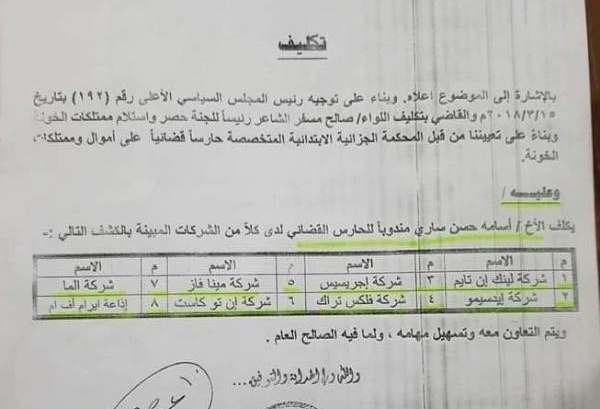 تكليف
بالإشارة إلى الموضوع أعلاه. وبناء على توجيه رئيس المجلس السياسي الأعلى رقم (١٩٢) بتاريخ
٢٠١٨/٣/١٥م والقاضي بتكليف اللواء/ صالح مسفر الشاعر رئيساً للجنة حصر واستلام ممتلكات الخونة
وبناءً على تعييننا من قبل المحكمة الجزائية الابتدائية المتخصصة حارساً قضائياً على أموال وممتلكات
الخونة.
وعليـــه /
يكلف الأخ / أسامه حسن ساري مندوباً للحارس القضائي لدى كلاً من الشركات المبينة بالكشف التالي :-
م الاسم م الاسم م الاسم م الاسم
١ شركة لينك إن تايم ٣ شركة إجريسيس ٥ شركة مينا فاز ٧ شركة الما
٢ شركة إيدسيمو ٤ شركة فلكس تراك ٦ شركة إن تو كاست ٨ إذاعة ايرام أف ام
ويتم التعاون معه وتسهيل مهامه ، ولما فيه الصالح العام .
والله ولي الهداية والتوفيق...